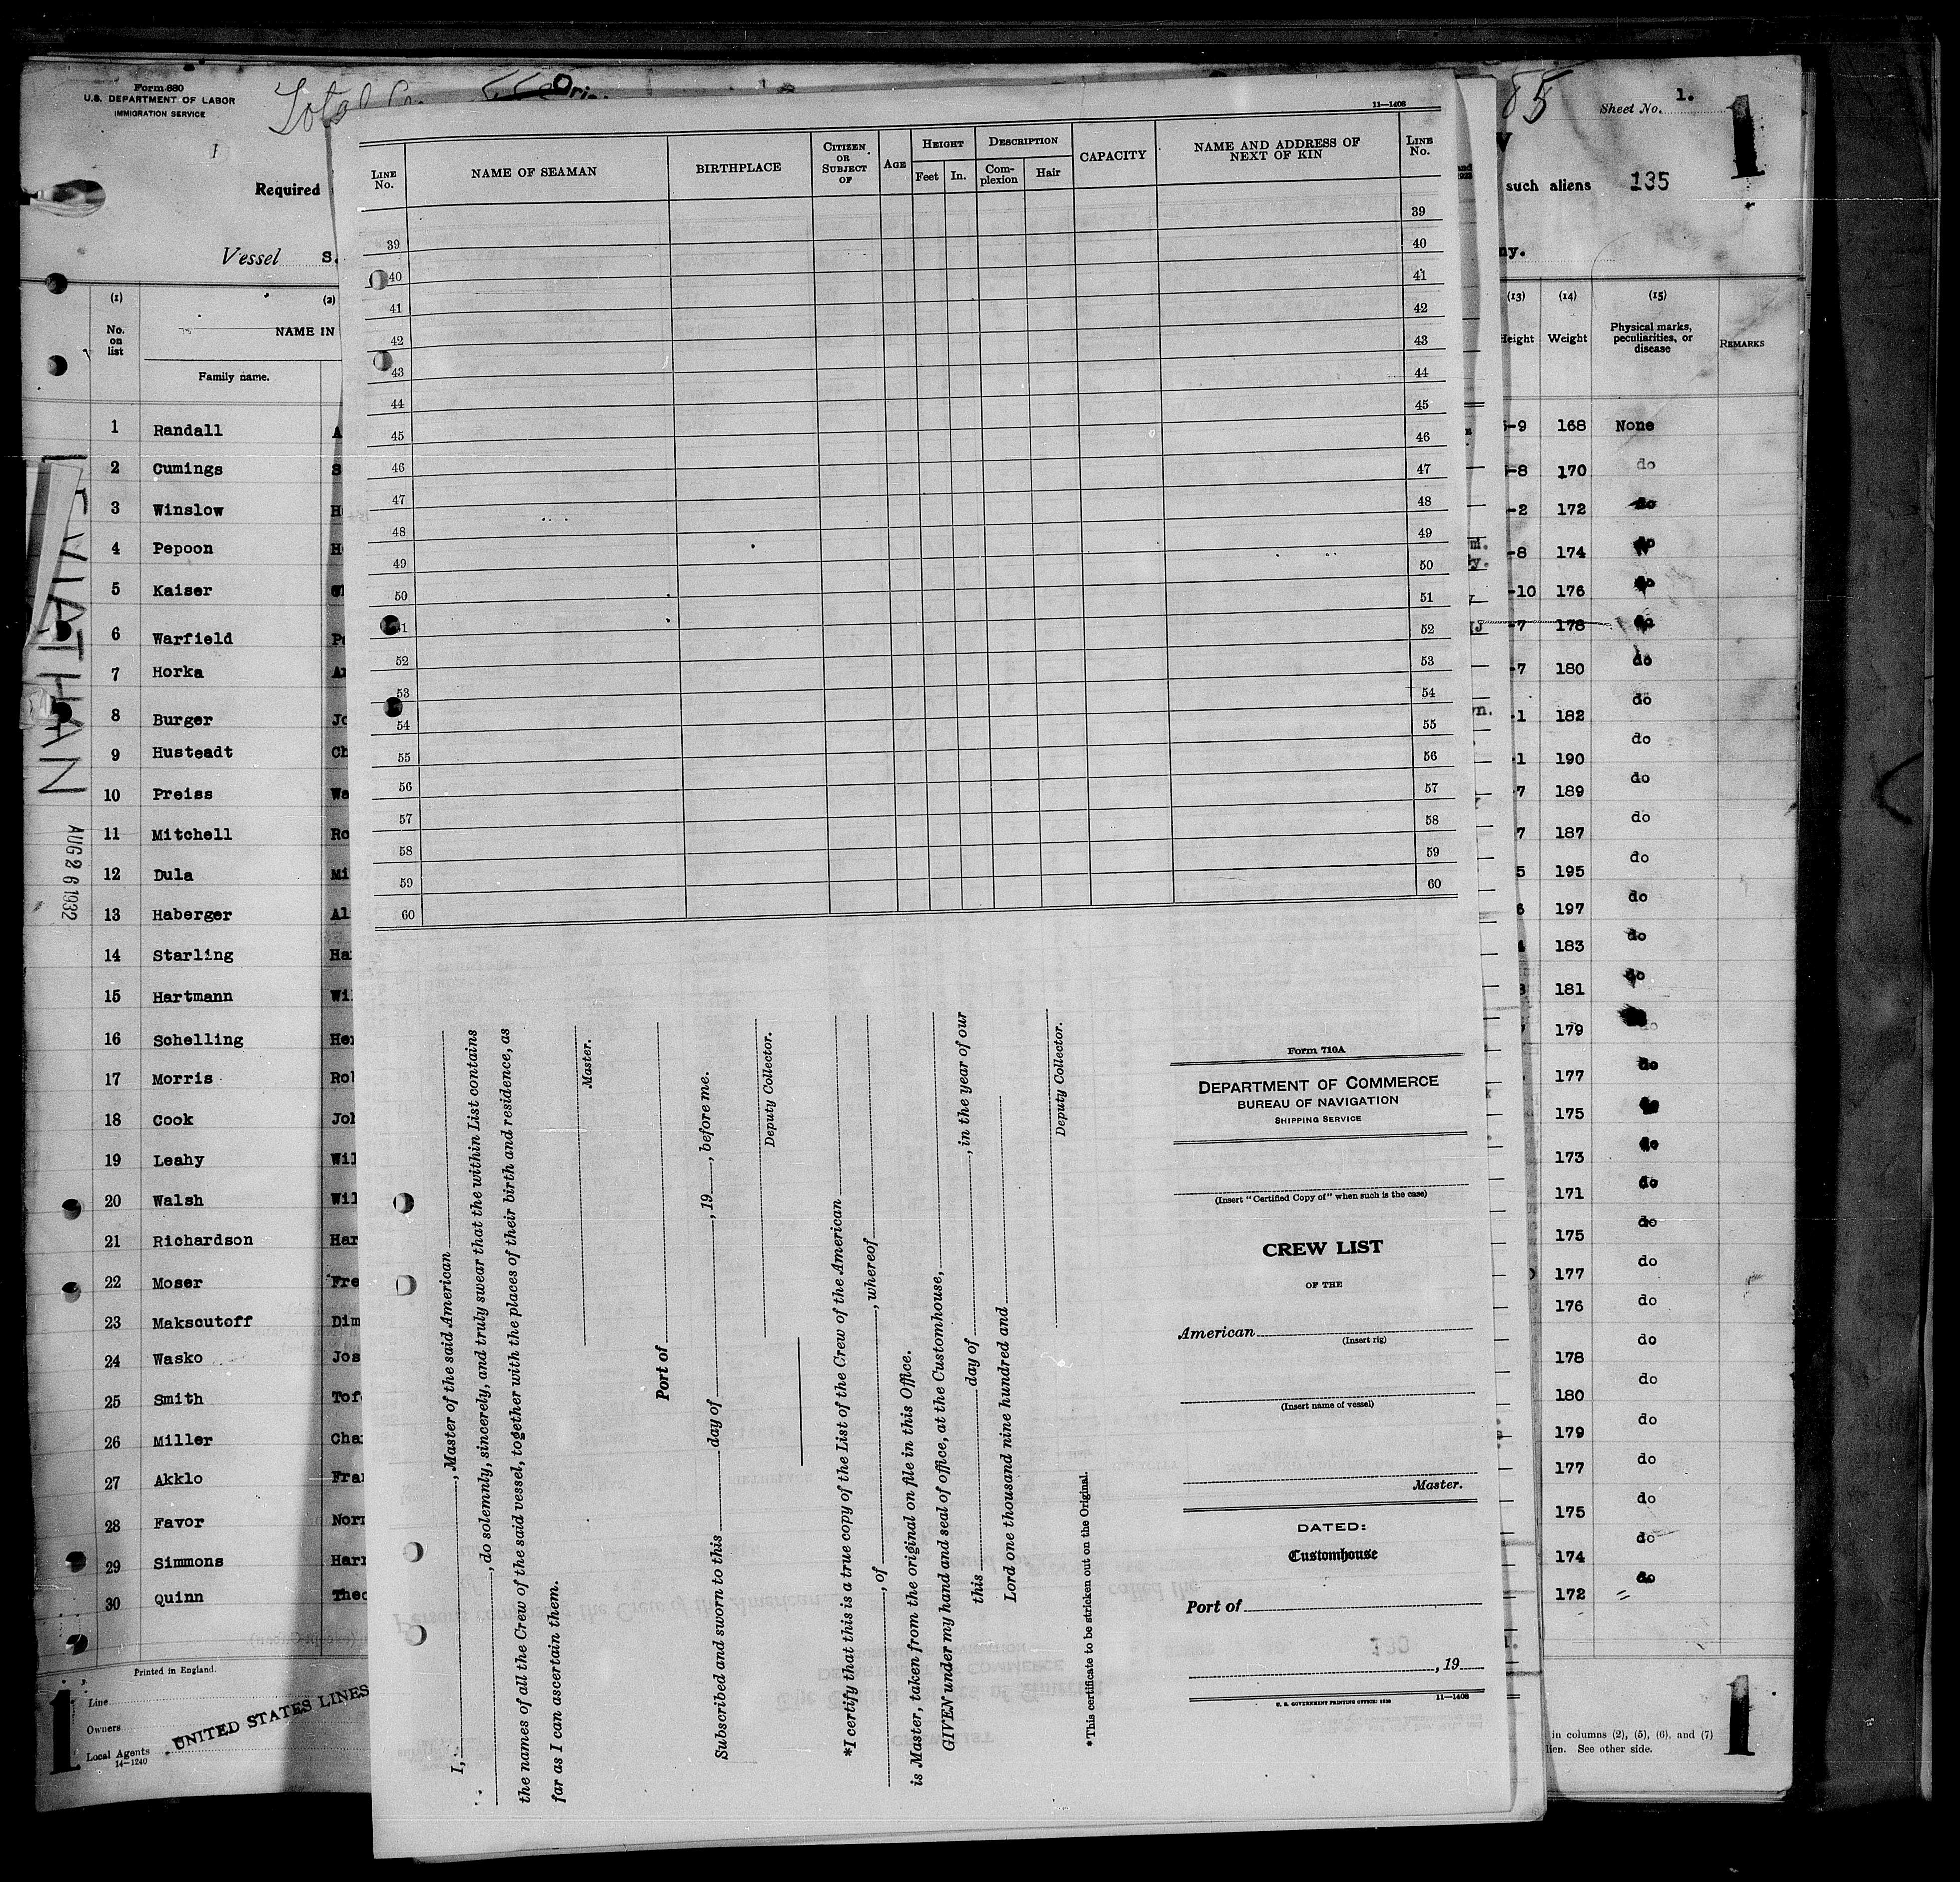 Form 680
U.S. DEPARTMENT OF LABOR
IMMIGRATION SERVICE
Total
Required
Vessel S.
85
Sheet No. 1.
1
such aliens 135
ny.
(1) (2)
No. on list
NAME IN
Family name.
(13) (14) (15)
Height Weight Physical marks, peculiarities, or disease REMARKS
1 Randall A
2 Cumings S
3 Winslow H
4 Pepoon H
5 Kaiser
6 Warfield
7 Horka
8 Burger Jo
9 Husteadt Ch
10 Preiss Wa
11 Mitchell Ro
12 Dula Mi
13 Haberger Al
14 Starling Ha
15 Hartmann Wil
16 Schelling Her
17 Morris Rol
18 Cook Joh
19 Leahy Wil
20 Walsh Wil
21 Richardson Har
22 Moser Fre
23 Makscutoff Dim
24 Wasko Jos
25 Smith Tof
26 Miller Cha
27 Akklo Fra
28 Favor Nor
29 Simmons Har
30 Quinn Theo
LEVIATHAN
AUG 26 1932
-9 168 None
-8 170 do
-2 172 do
-8 174 do
-10 176 do
-7 178 do
-7 180 do
-1 182 do
-1 190 do
-7 189 do
7 187 do
5 195 do
6 197 do
183 do
181 do
179 do
177 do
175 do
173 do
171 do
175 do
177 do
176 do
178 do
180 do
179 do
177 do
175 do
174 do
172 do
Printed in England.
Line
Owners
Local Agents
14—1240
UNITED STATES LINES
1
in columns (2), (5), (6), and (7)
lien. See other side.
1
11—1408
LINE No. NAME OF SEAMAN BIRTHPLACE CITIZEN OR SUBJECT OF AGE HEIGHT Feet In. DESCRIPTION Complexion Hair CAPACITY NAME AND ADDRESS OF NEXT OF KIN LINE No.
39 39
40 40
41 41
42 42
43 43
44 44
45 45
46 46
47 47
48 48
49 49
50 50
51 51
52 52
53 53
54 54
55 55
56 56
57 57
58 58
59 59
60 60
I, , Master of the said American
, do solemnly, sincerely, and truly swear that the within List contains
the names of all the Crew of the said vessel, together with the places of their birth and residence, as
far as I can ascertain them.
Master.
Port of
Subscribed and sworn to this day of , 19 , before me.
Deputy Collector.
*I certify that this is a true copy of the List of the Crew of the American
, of , whereof
is Master, taken from the original on file in this Office.
GIVEN under my hand and seal of office, at the Customhouse,
this day of , in the year of our
Lord one thousand nine hundred and
Deputy Collector.
*This certificate to be stricken out on the Original.
Form 710A
DEPARTMENT OF COMMERCE
BUREAU OF NAVIGATION
SHIPPING SERVICE
(Insert "Certified Copy of" when such is the case)
CREW LIST
OF THE
American
(Insert rig)
(Insert name of vessel)
Master.
DATED:
Customhouse
Port of
, 19
U. S. GOVERNMENT PRINTING OFFICE: 1930 11—1408